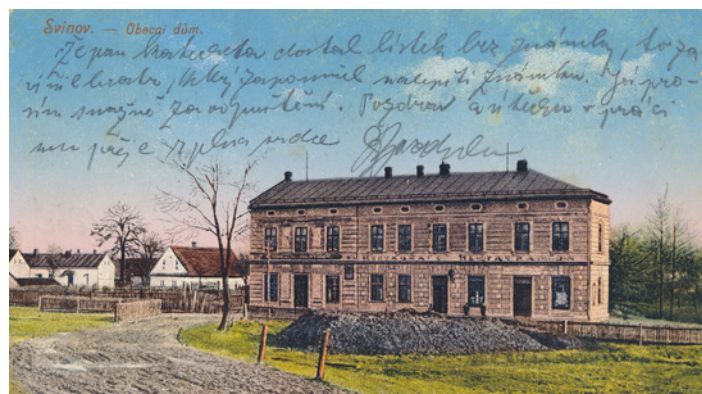 Svinov. — Obecní dům.
Že pan katecheta dostal lístek bez známky, to za
vinil bratr, který zapomněl nalepiti známku. Já pro-
sím snažně za odpuštění. Pozdrav a útěchu v práci
mu přeje z plna srdce